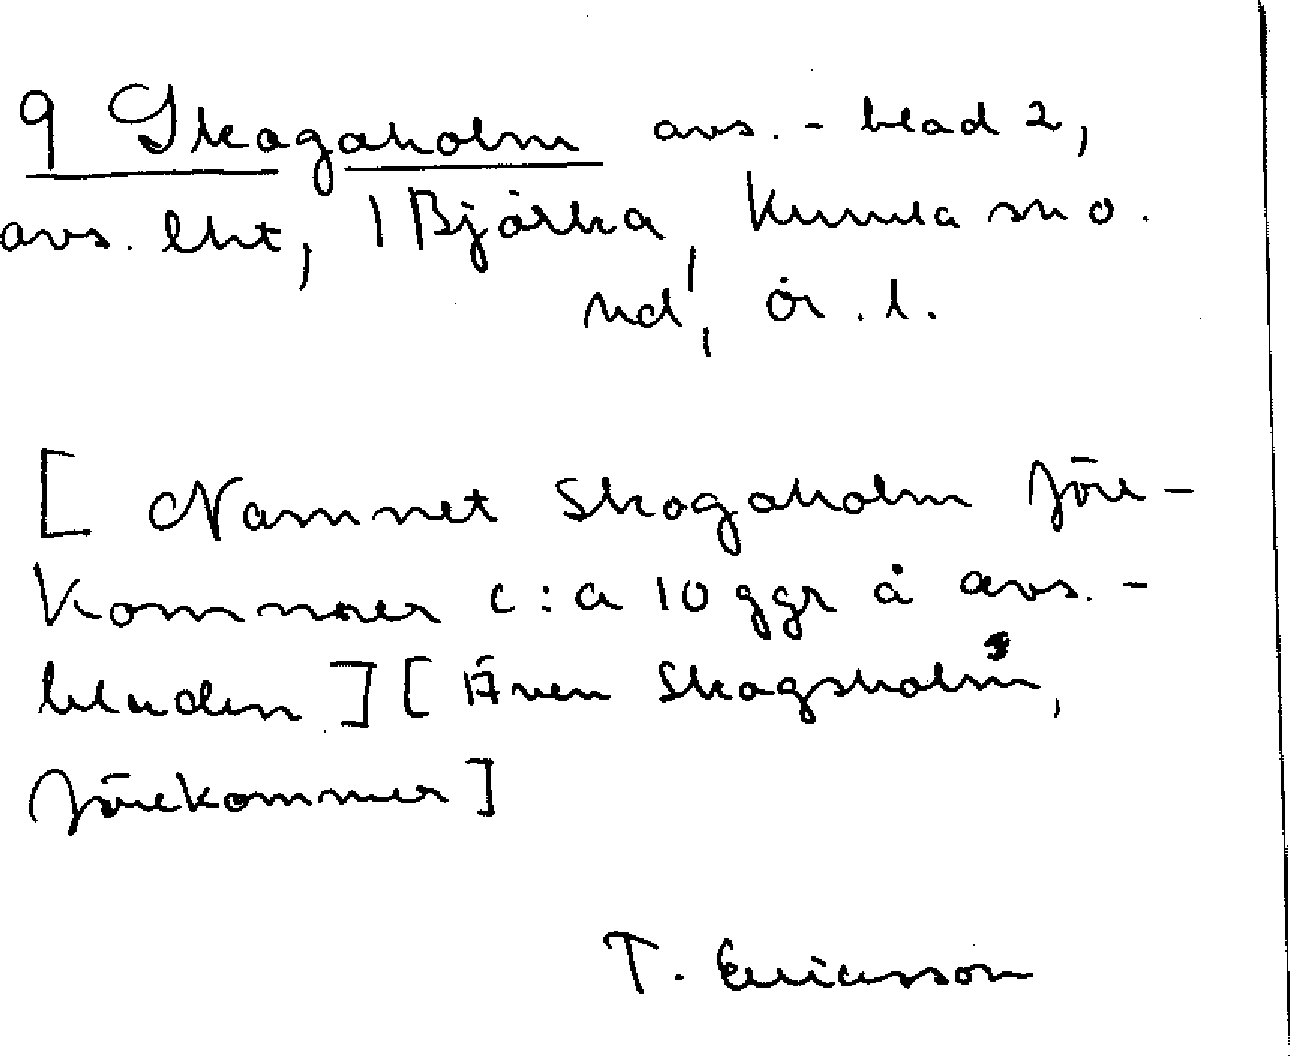 9 Skogaholm avs.-blad 2,
avs. lht, 1 Björka, Kumla sn o.
hd, ör. l.
[Namnet Skogaholm före-
kommer c:a 10 ggr å avs.-
bladen] [Även Skogsholm,
förekommer]
T. Ericsson